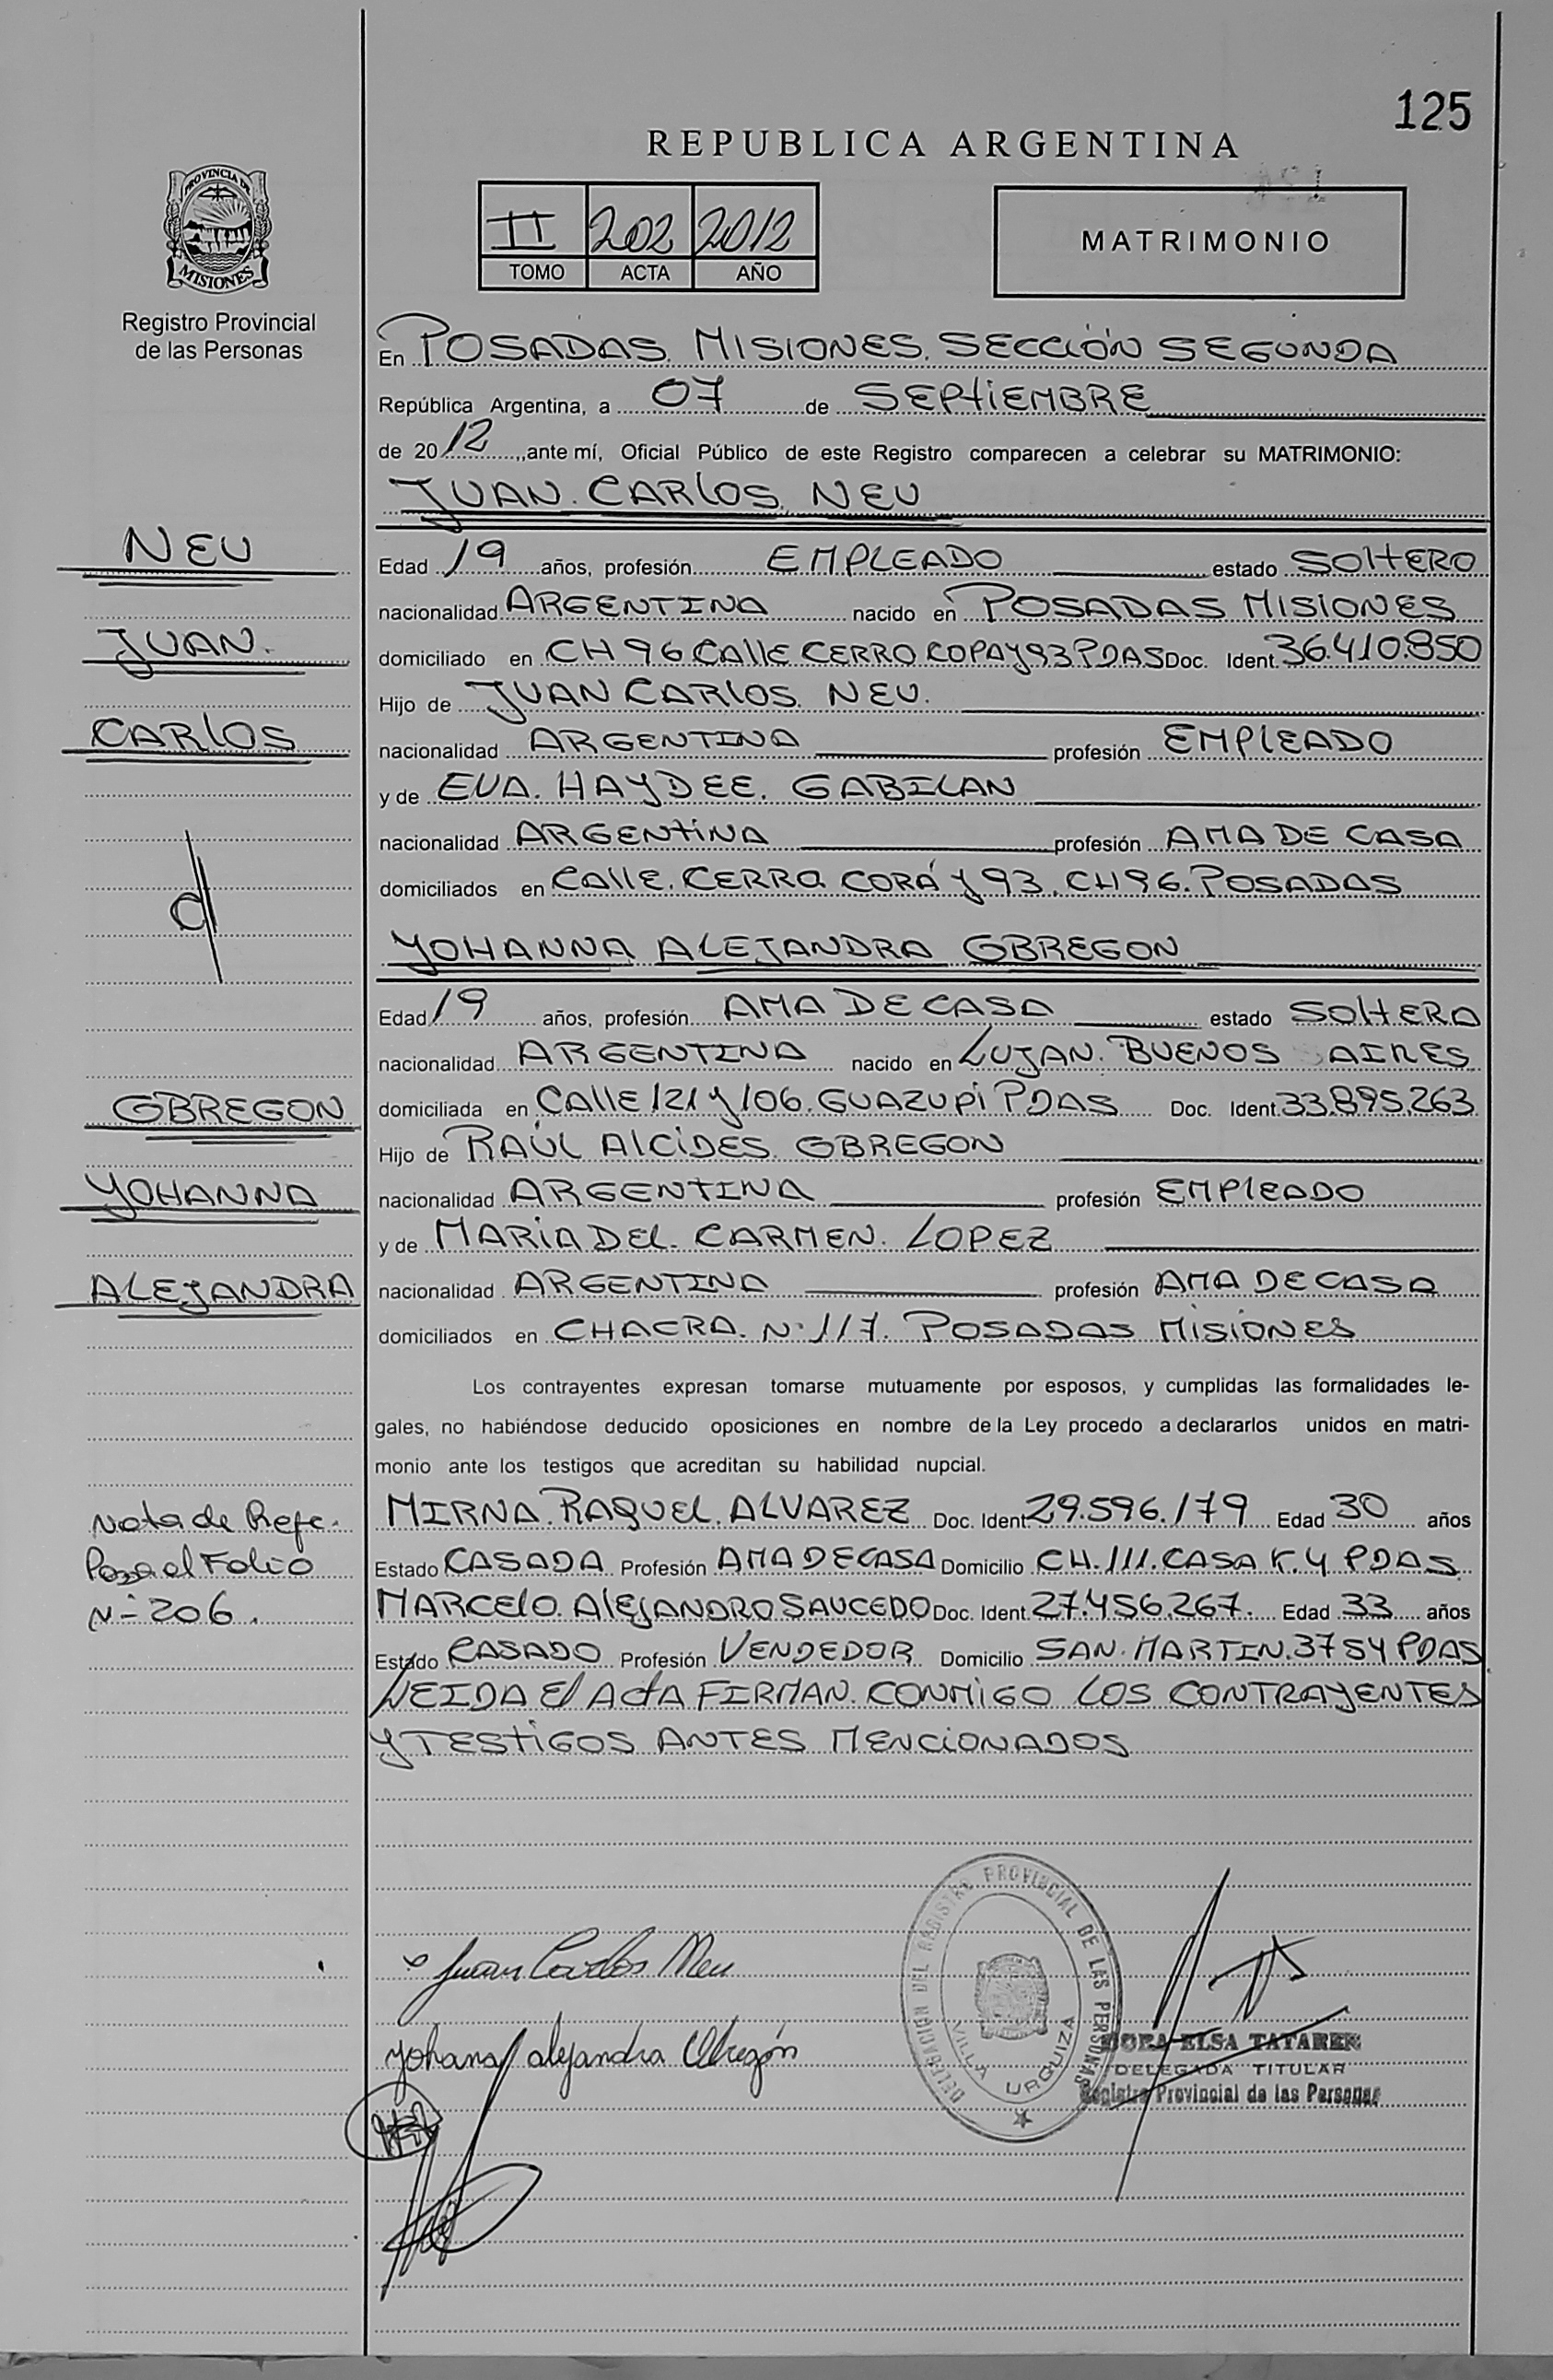 125
REPUBLICA ARGENTINA
PROVINCIA DE
MISIONES
Registro Provincial
de las Personas
II 202 2012
TOMO ACTA AÑO
MATRIMONIO
En POSADAS. MISIONES. SECCIÓN SEGUNDA
República Argentina, a 07 de SEPTIEMBRE
de 2012, ante mí, Oficial Público de este Registro comparecen a celebrar su MATRIMONIO:
JUAN CARLOS NEU
NEU
Edad 19 años, profesión EMPLEADO estado SOLTERO
nacionalidad ARGENTINA nacido en POSADAS MISIONES
JUAN.
domiciliado en CH 96 CALLE CERRO COPA Y 93 PDAS Doc. Ident. 36.410.850
Hijo de JUAN CARLOS NEU.
CARLOS
nacionalidad ARGENTINA profesión EMPLEADO
y de EVA. HAYDEE. GABILAN
nacionalidad ARGENTINA profesión AMA DE CASA
domiciliados en CALLE. CERRO CORÁ Y 93. CH 96. POSADAS
YOHANNA ALEJANDRA OBREGON
Edad 19 años, profesión AMA DE CASA estado SOLTERA
nacionalidad ARGENTINA nacido en LUJAN. BUENOS AIRES
OBREGON
domiciliada en CALLE 121 Y 106. GUAZUPI PDAS Doc. Ident. 33.895.263
Hijo de RAÚL ALCIDES OBREGON
YOHANNA
nacionalidad ARGENTINA profesión EMPLEADO
y de MARIA DEL. CARMEN. LOPEZ
ALEJANDRA
nacionalidad ARGENTINA profesión AMA DE CASA
domiciliados en CHACRA. N° 117. POSADAS MISIONES
Los contrayentes expresan tomarse mutuamente por esposos, y cumplidas las formalidades le-
gales, no habiéndose deducido oposiciones en nombre de la Ley procedo a declararlos unidos en matri-
monio ante los testigos que acreditan su habilidad nupcial.
Nota de Refe.
Pasa al Folio
N- 206.
MIRNA. RAQUEL. ALVAREZ Doc. Ident. 29.596.179 Edad 30 años
Estado CASADA Profesión AMA DE CASA Domicilio CH. 111. CASA K. 4 PDAS
MARCELO. ALEJANDRO SAUCEDO Doc. Ident. 27.456.267. Edad 33 años
Estado CASADO Profesión VENDEDOR Domicilio SAN. MARTIN. 3754 PDAS
LEIDA EL ACTA FIRMAN. CONMIGO LOS CONTRAYENTES
Y TESTIGOS ANTES MENCIONADOS
Juan Carlos Neu
Yohana alejandra Obregón
DELEGACION DEL REGISTRO PROVINCIAL DE LAS PERSONAS
VILLA URQUIZA
DORA ELSA TATAREN
DELEGADA TITULAR
Registro Provincial de las Personas